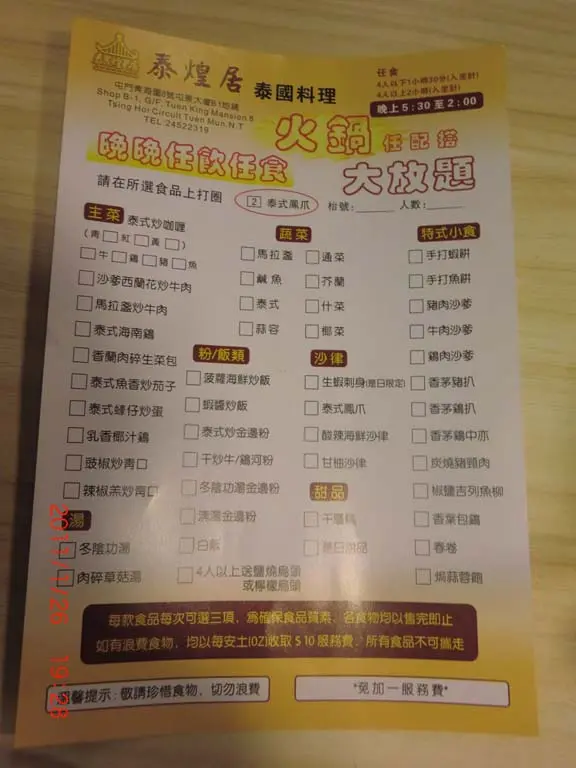 泰煌居 泰國料理
屯門青海圍8號屯景大廈B1地鋪
Shop B-1, G/F. Tuen King Mansion 8
Tsing Hoi Circuit Tuen Mun.N.T
TEL:24522319
任食
4人以下1小時30分(入坐計)
4人以上2小時(入坐計)
晚上5:30至2:00
火鍋任配搭
晚晚任飲任食
大放題
請在所選食品上打圈
2 泰式鳳爪
枱號: 人數:
主菜
泰式炒咖喱
(青 紅 黃 )
牛 雞 豬 魚
沙爹西蘭花炒牛肉
馬拉盞炒牛肉
泰式海南鷄
香蘭肉碎生菜包
泰式魚香炒茄子
泰式蠔仔炒蛋
乳香椰汁鷄
豉椒炒青口
辣椒羔炒青口
湯
冬陰功湯
肉碎草菇湯
蔬菜
馬拉盞
鹹魚
泰式
蒜容
通菜
芥蘭
什菜
椰菜
粉/飯類
菠蘿海鮮炒飯
蝦醬炒飯
泰式炒金邊粉
干炒牛/鷄河粉
冬陰功湯金邊粉
清湯金邊粉
白飯
4人以上送鹽燒烏頭
或檸檬烏頭
沙律
生蝦刺身(是日限定)
泰式鳳爪
酸辣海鮮沙律
甘柚沙律
甜品
是日甜品
特式小食
手打蝦餅
手打魚餅
豬肉沙爹
牛肉沙爹
鷄肉沙爹
香茅豬扒
香茅鷄扒
香茅鷄中亦
炭燒豬頸肉
椒鹽吉列魚柳
香葉包鷄
春卷
焗蒜蓉飽
每款食品每次可選三項，為確保食品質素，各食物均以售完即止
如有浪費食物，均以每安士(OZ)收取$10服務費，所有食品不可攜走
溫馨提示:敬請珍惜食物，切勿浪費
*免加一服務費*
2011/1/26 19:28